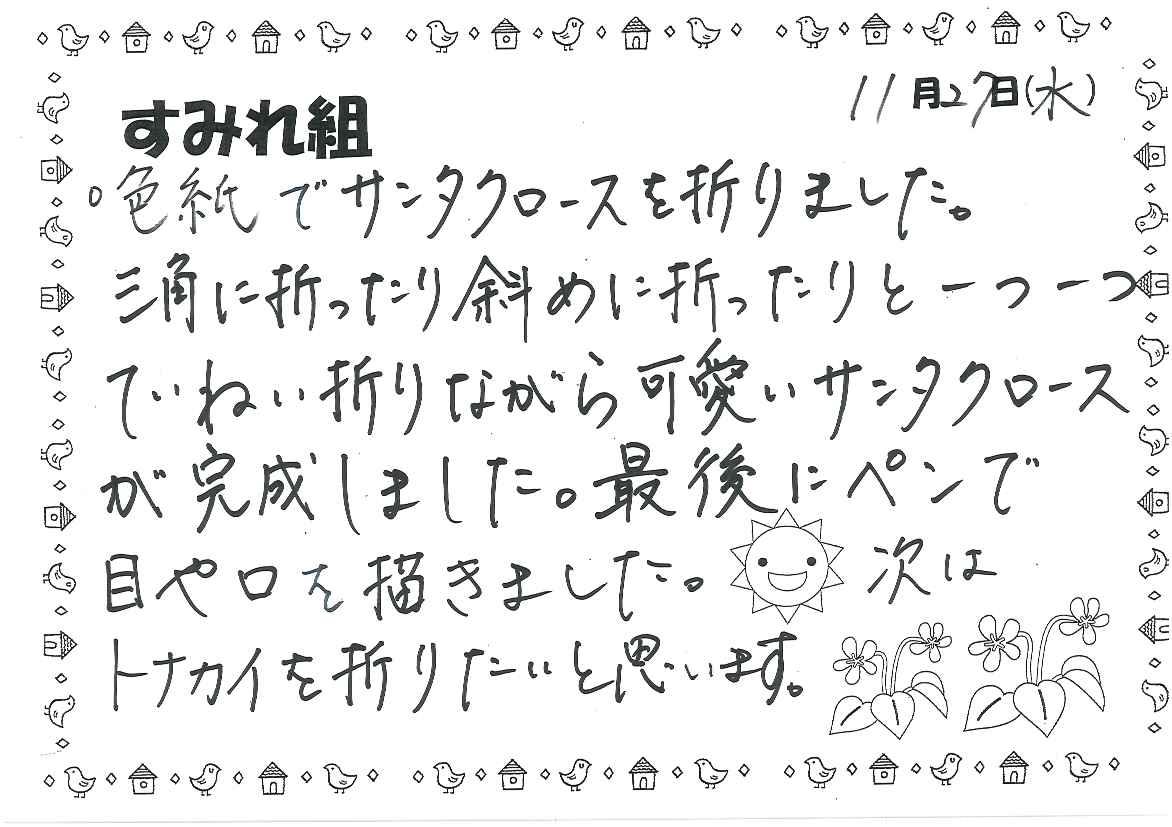 11月27日(水)
すみれ組
。色紙でサンタクロースを折りました。
三角に折ったり斜めに折ったりと一つ一つ
ていねい折りながら可愛いサンタクロース
が完成しました。最後にペンで
目や口を描きました。 次は
トナカイを折りたいと思います。